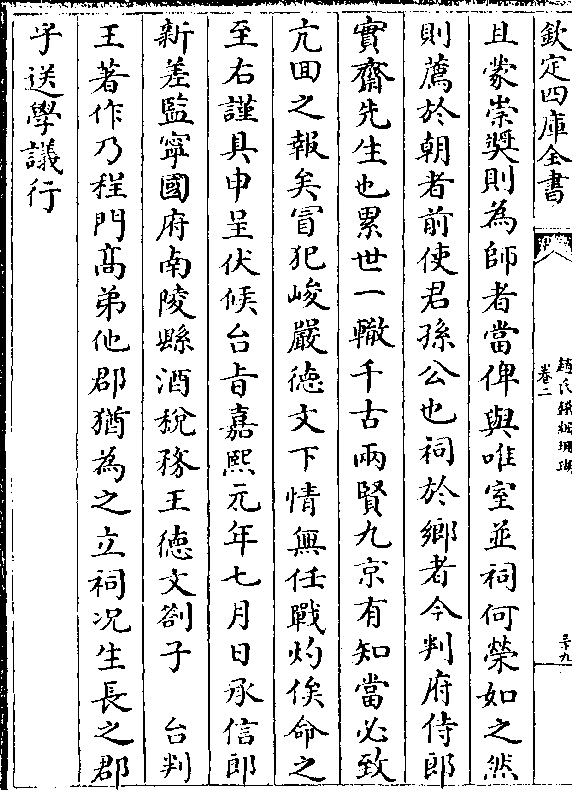 欽定四庫全書
趙氏鐵網珊瑚
卷二
三十九
且蒙崇奬則為師者當俾與唯室並祠何榮如之然
則薦於朝者前使君孫公也祠於鄉者今判府侍郎
實齋先生也累世一轍千古兩賢九京有知當必致
亢回之報矣冒犯峻嚴德文下情無任戰灼俟命之
至右謹具申呈伏候台旨嘉熙元年七月日承信郎
新差監寧國府南陵縣酒稅務王德文劄子　台判
王著作乃程門髙弟他郡猶為之立祠况生長之郡
乎送學議行